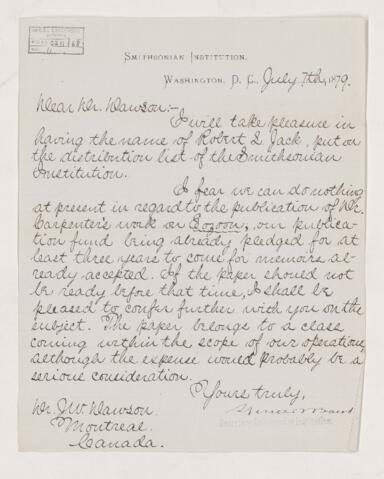 SMITHSONIAN INSTITUTION.
WASHINGTON, D. C., July 7th, 1879.
Dear Dr. Dawson:-
I will take pleasure in
having the name of Robert L. Jack, put on
the distribution list of the Smithsonian
Institution.
I fear we can do nothing
at present in regard to the publication of Dr.
Carpenter's work on Eozoon, our publica-
tion fund being already pledged for at
least three years to come for memoirs al-
ready accepted. If the paper should not
be ready before that time, I shall be
pleased to confer further with you on the
subject. The paper belongs to a class
coming within the scope of our operations,
although the expense would probably be a
serious consideration.
Yours truly,
Dr. J. W. Dawson.
Montreal.
Canada.